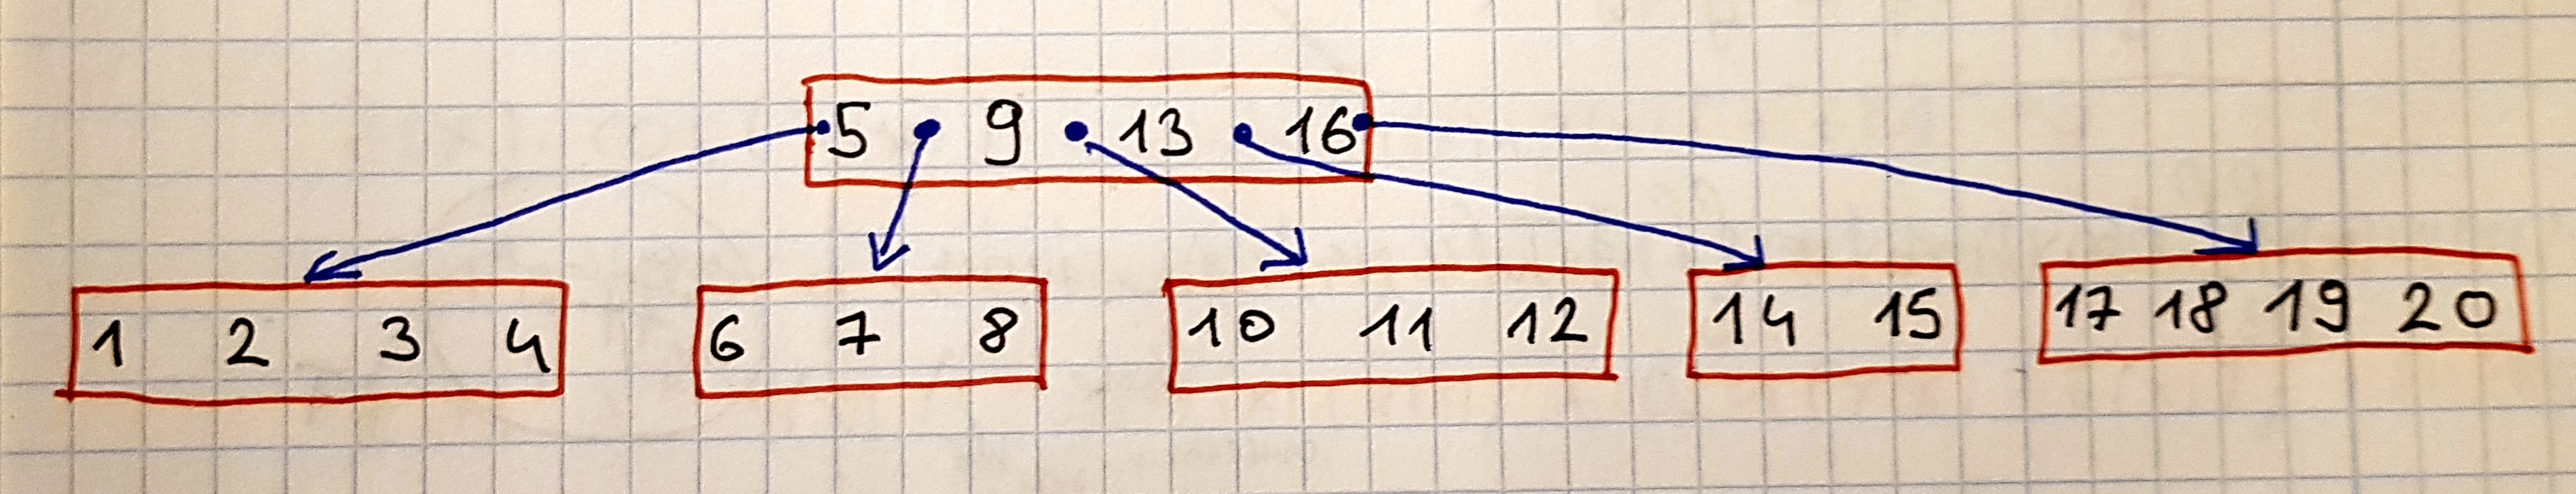 5 9 13 16
1 2 3 4 6 7 8 10 11 12 14 15 17 18 19 20